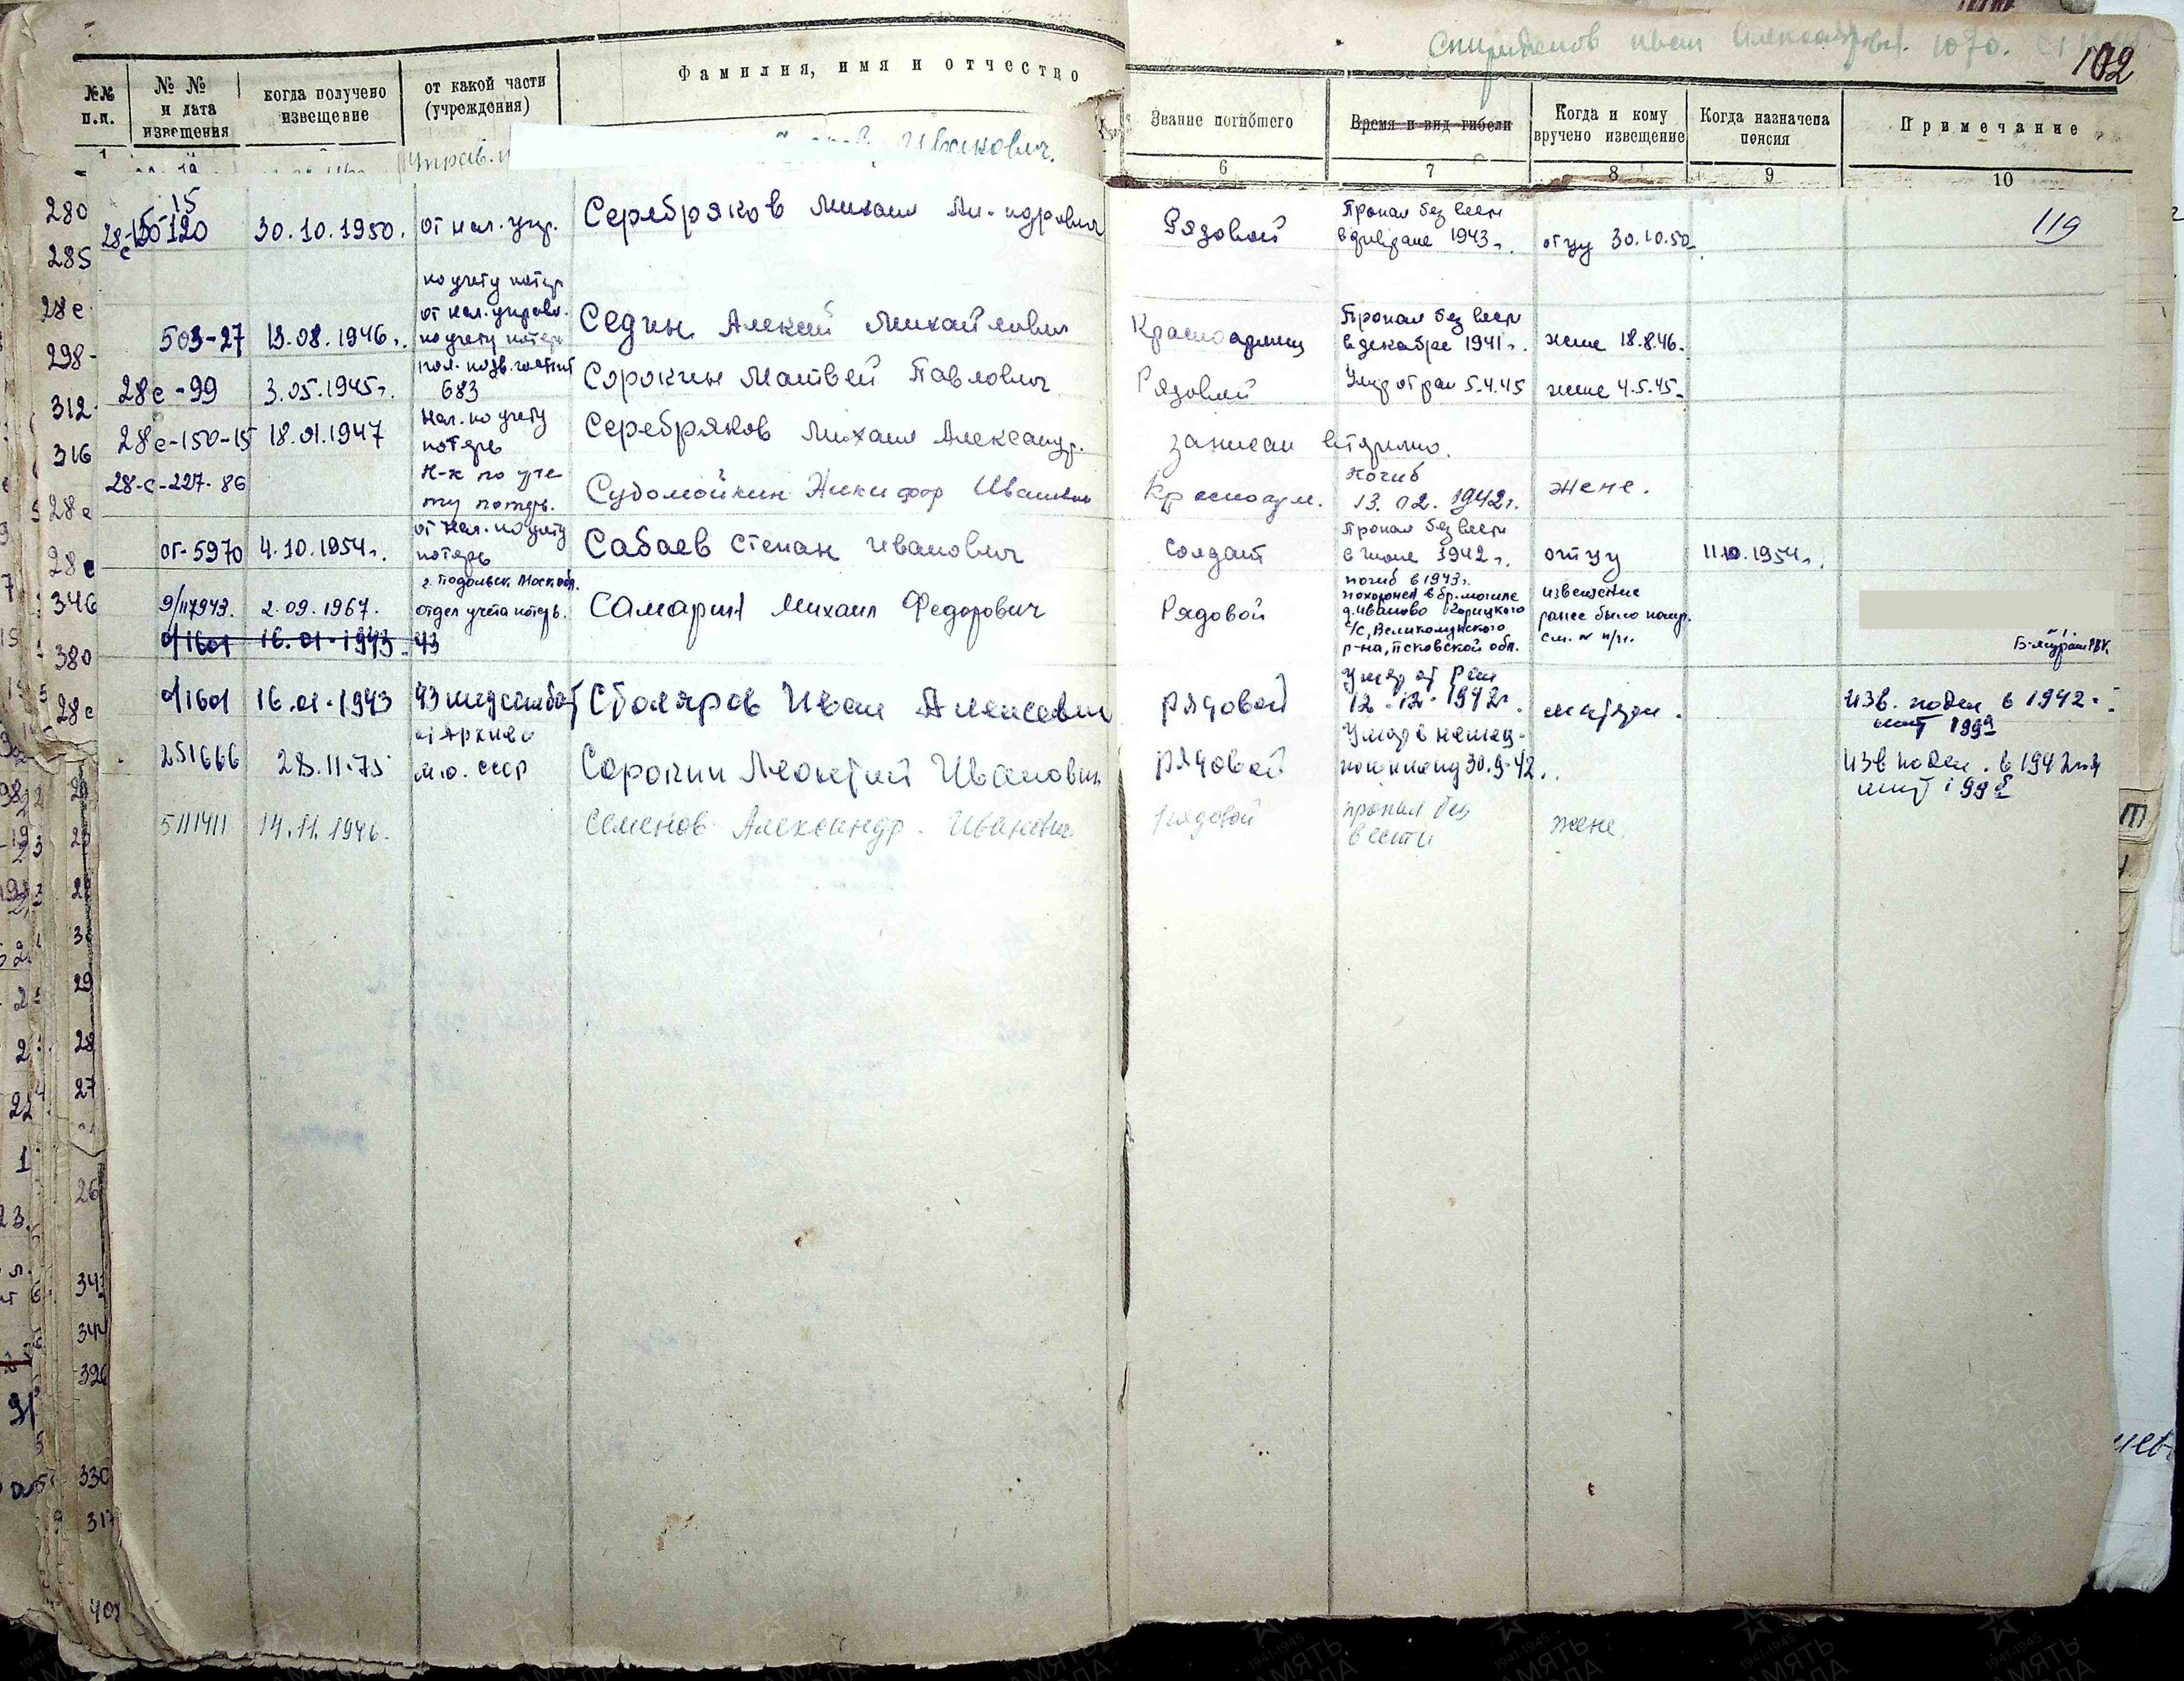 Спиридонов Иван 1070.
102
№№ п.п.
№ № и дата извещения
когда получено извещение
от какой части (учреждения)
Фамилия, имя и отчество
Звание погибшего
Время и вид гибели
Когда и кому вручено извещение
Когда назначена пенсия
Примечание
1
6
7
8
9
10
Иванович.
119
15
28-с 150-120 30.10.1950. от нач. упр. Серебряков Михаил Ал-ндрович Рядовой Пропал без вести в феврале 1943г. отцу 30.10.50
по учету потер
от нач. управл.
503-27 13.08.1946г. по учету потерь Седин Алексей Михайлович Красноармеец Пропал без вести в декабре 1941г. жене 18.8.46.
28с-99 3.05.1945г. 683 Сорокин Матвей Павлович Рядовой Умер от ран 5.4.45 жене 4.5.45
28с-150-15 18.01.1947 Нач. по учету потерь Серебряков Михаил Александр. записан вторично.
28-с-227-86 Н-к по уче ту потерь. Судомойкин Никифор Иванович Красноарм. Погиб 13.02.1942г. жене.
ог-5970 4.10.1954г. от Нач. по учету потерь Сабаев Степан Иванович солдат Пропал без вести в июне 1942г. отцу 11.10.1954г.
9/117943. 2.09.1967. г. Подольск Моск обл. отдел учета потерь. Самарин Михаил Федорович Рядовой погиб в 1943г. похоронен в бр. могиле д. Иваново Горицкого с/с, Великолукского р-на, Псковской обл. извещение ранее было напр. см. № н/н.
0/1601 16.01.1943 43
0/1601 16.01.1943 43 медсанбат Столяров Иван Алексеевич рядовой Умер от ран 12.12.1942г. матери. изв. подш. в 1942г.
251666 28.11.75 от Архива М.О. СССР Сорокин Леонтий Иванович рядовой Умер в немец. плену 30.9.42. изв подш. в 1942г
5111411 14.11.1946. Семенов Александр Иванович рядовой пропал без вести жене.
280
285
28с
298
312
316
28с
28с
346
380
28с
29
28
27
26
341
344
326
330
317